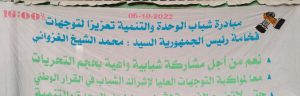 16:00 06-10-2022
مبادرة شباب الوحدة والتنمية تعزيزا لتوجهات
فخامة رئيس الجمهورية السيد : محمد الشيخ الغزواني
نعم من أجل مشاركة شبابية واعية بحجم التحديات
معا لمواكبة التوجهات العليا لإشراك الشباب في القرار الوطني